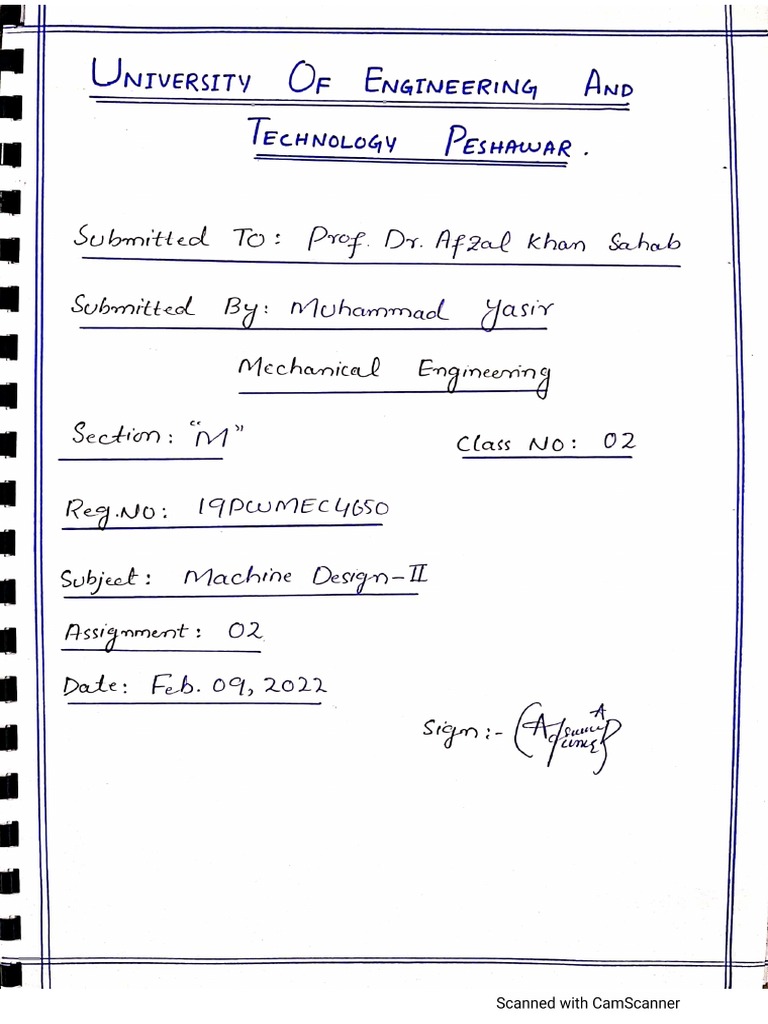 UNIVERSITY OF ENGINEERING AND
TECHNOLOGY PESHAWAR.
Submitted To: Prof. Dr. Afzal Khan Sahab
Submitted By: Muhammad Yasir
Mechanical Engineering
Section: "M"
Class No: 02
Reg.No: 19PWMEC4650
Subject: Machine Design-II
Assignment: 02
Date: Feb. 09, 2022
Sign:-
Scanned with CamScanner